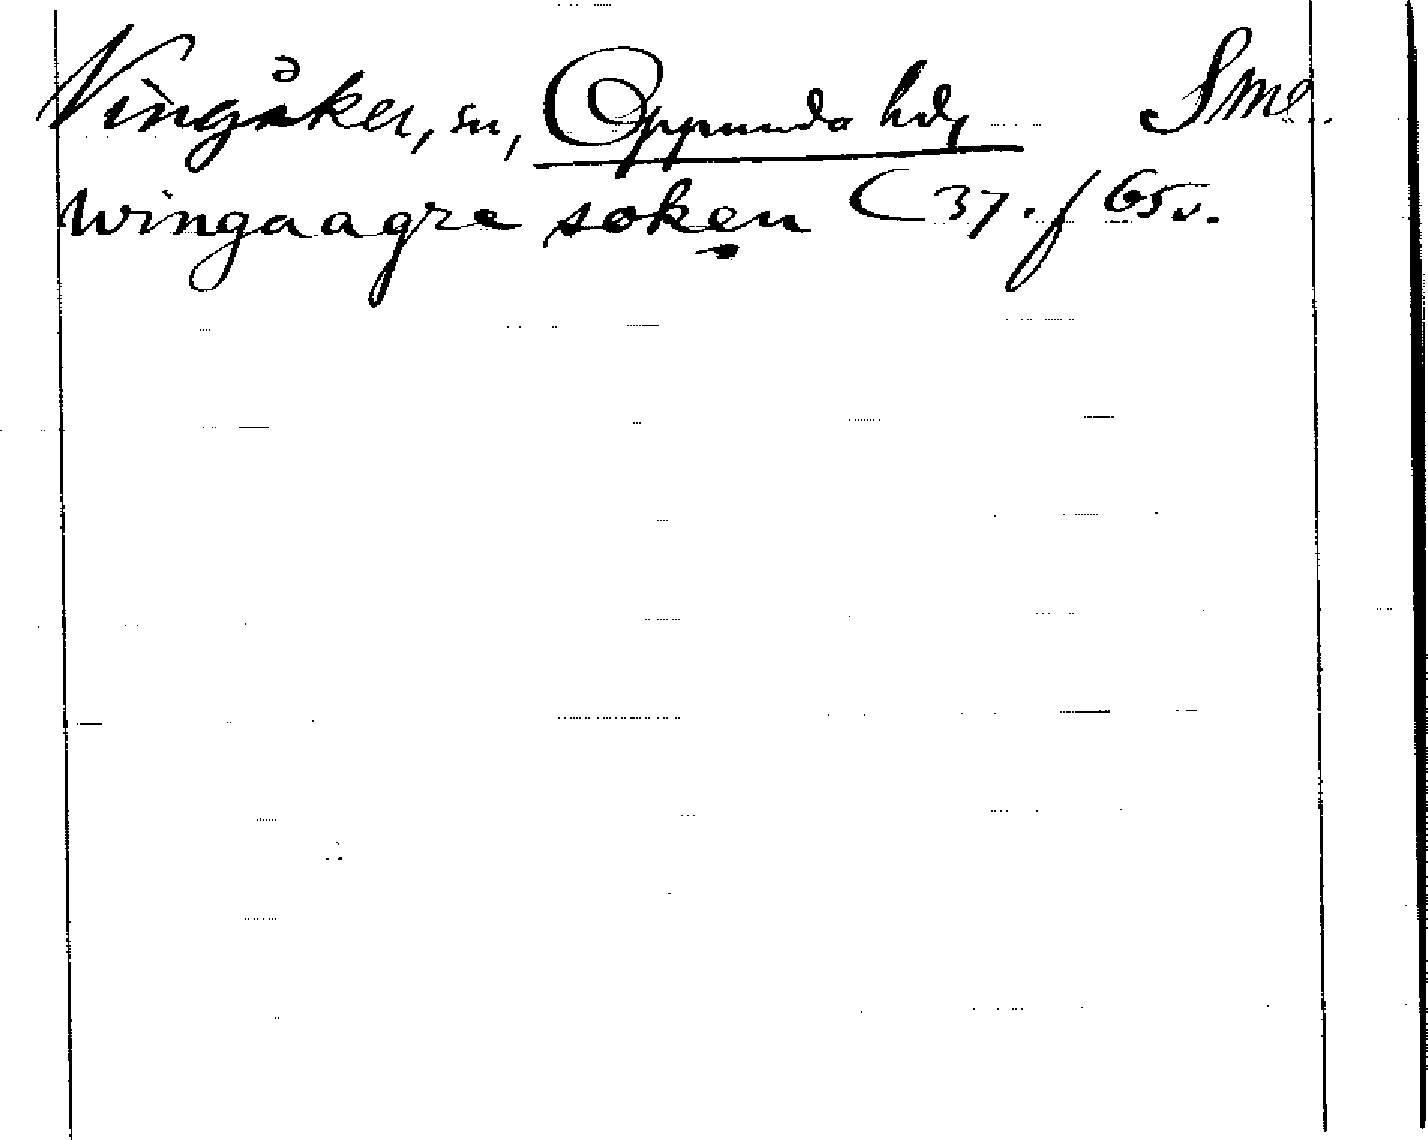 Vingåker, sn, Oppunda hd, Sml.
wingaagre soken C 37. f 65v.